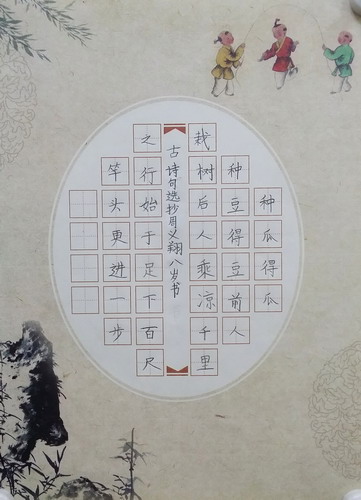 种瓜得瓜
种豆得豆前人
栽树后人乘凉千里
古诗句选抄周义翔八岁书
之行始于足下百尺
竿头更进一步